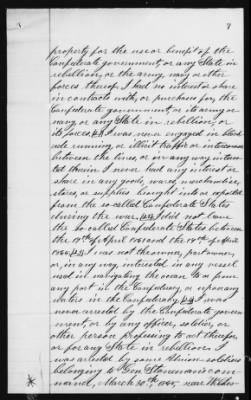 7
property for the use or benefit of the
Confederate government, or any State in
rebellion, or the army, navy or other
forces thereof, I had no interest or share
in contracts with, or purchases for, the
Confederate government, or its army or
navy, or any State in rebellion, or
its forces. I was never engaged in block
ade running, or illicit traffic or intercourse
between the lines, or in any way interes
ted therein I never had any interest or
share in any goods, wares, merchandise,
stores, or supplies brought into or exported
from the so-called Confederate States
during the war. I did not leave
the so called Confederate States between
the 19th of April 1861 and the 19th of April
1865. I was not the owner, part owner,
or in any way, interested in any vessel
used in navigating the ocean to or from
any port in the Confederacy, or upon any
waters in the Confederacy. I was
never arrested by the Confederate govern
ment, or by any officer, soldier, or
other person professing to act therefor,
or for any State in rebellion. I
was arrested by some Union soldiers
belonging to Gen Stoneman's com
mand, March 30th 1865, near